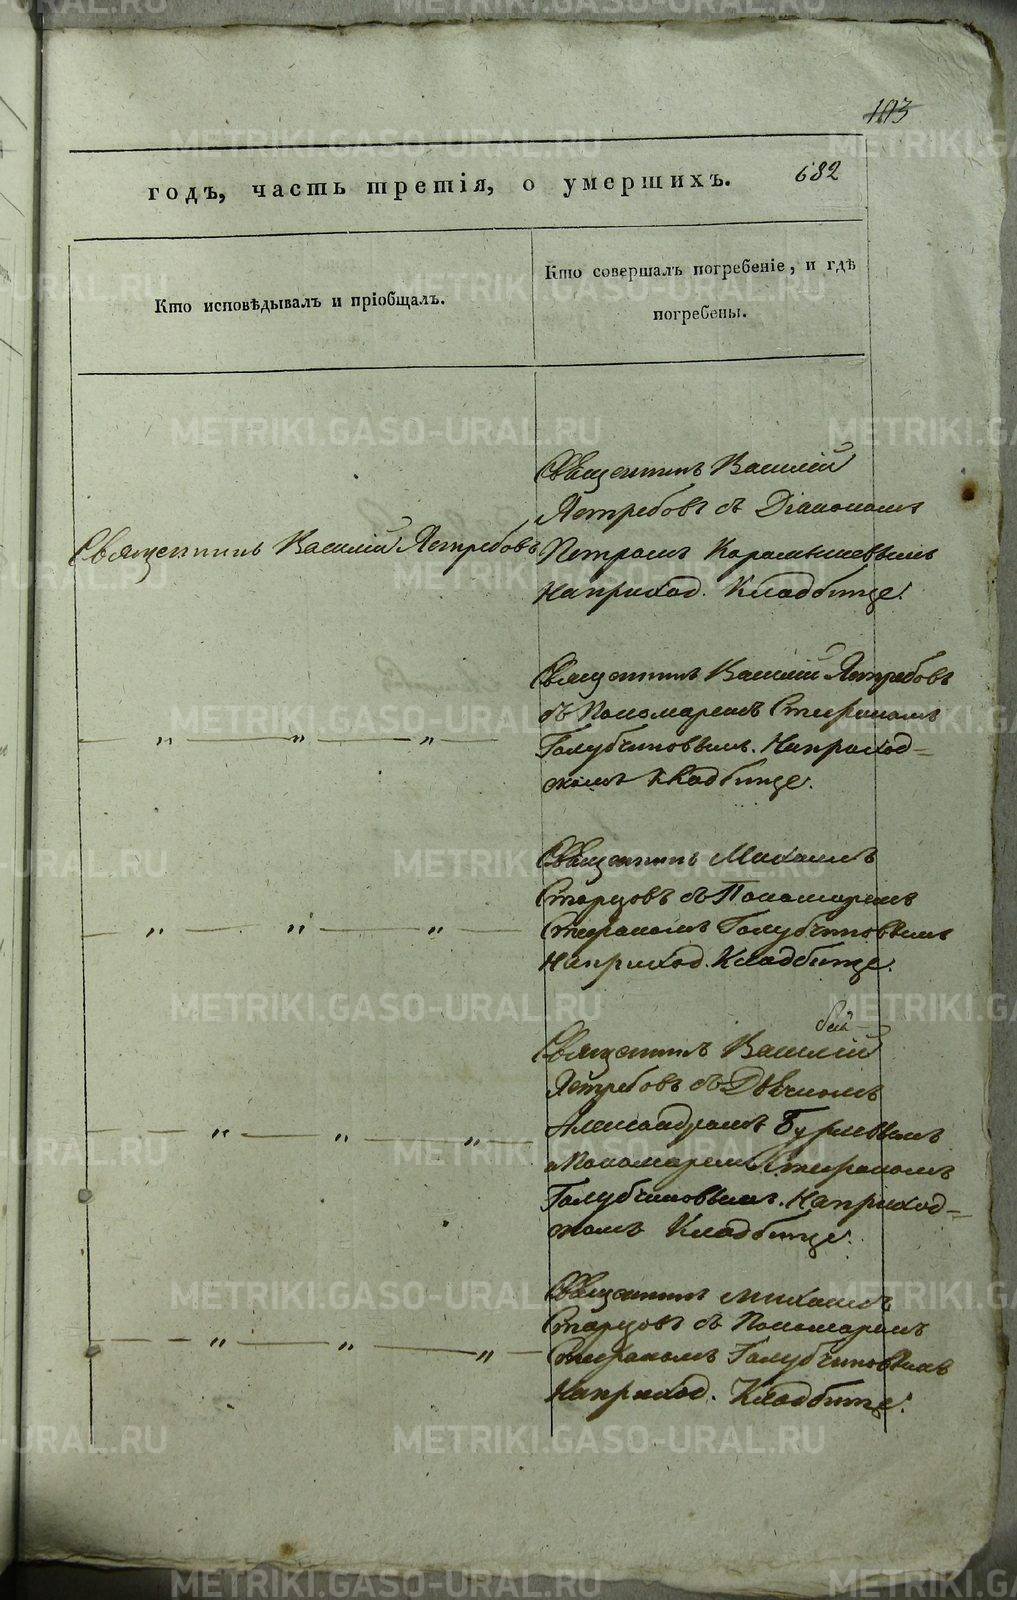 103
682
годъ, часть третія, о умершихъ.
Кто исповѣдывалъ и пріобщалъ.
Кто совершалъ погребеніе, и гдѣ
погребены.
Священникъ Василій Ястребовъ
Священникъ Василій
Ястребовъ съ Діакономъ
Петромъ Карамышевымъ
На приход. Кладбище.
Священникъ Василій Ястребовъ
съ Пономаремъ Стефаномъ
Голубчиковымъ. На приход-
скомъ Кладбище.
— „ — „ — „ —
Священникъ Михаилъ
Старцовъ съ Пономаремъ
Стефаномъ Голубчиковымъ
На приход. Кладбище.
— „ „ — „ —
Священникъ Василій
Ястребовъ съ Дьячкомъ
Александромъ
и Пономаремъ Стефаномъ
Голубчиковымъ. На приход-
скомъ Кладбище.
— „ — „ — „ —
Священникъ Михаилъ
Старцовъ съ Пономаремъ
Стефаномъ Голубчиковымъ
На приход. Кладбище.
— „ — „ — „ —
METRIKI.GASO-URAL.RU